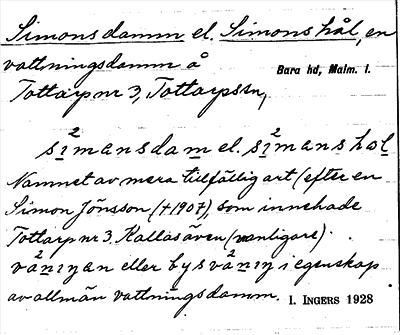 Simonsdamm el. Simonshål, en
vattningsdamm å
Bara hd, Malm. l.
Tottarp nr 3, Tottarpssn,
simansdam el. simanshol
Namnet av mera tillfällig art (efter en
Simon Jönsson (+1907), som innehade
Tottarp nr 3. Kallas även (vanligare)
eller i egenskap
av allmän vattningsdamm. I. INGERS 1928